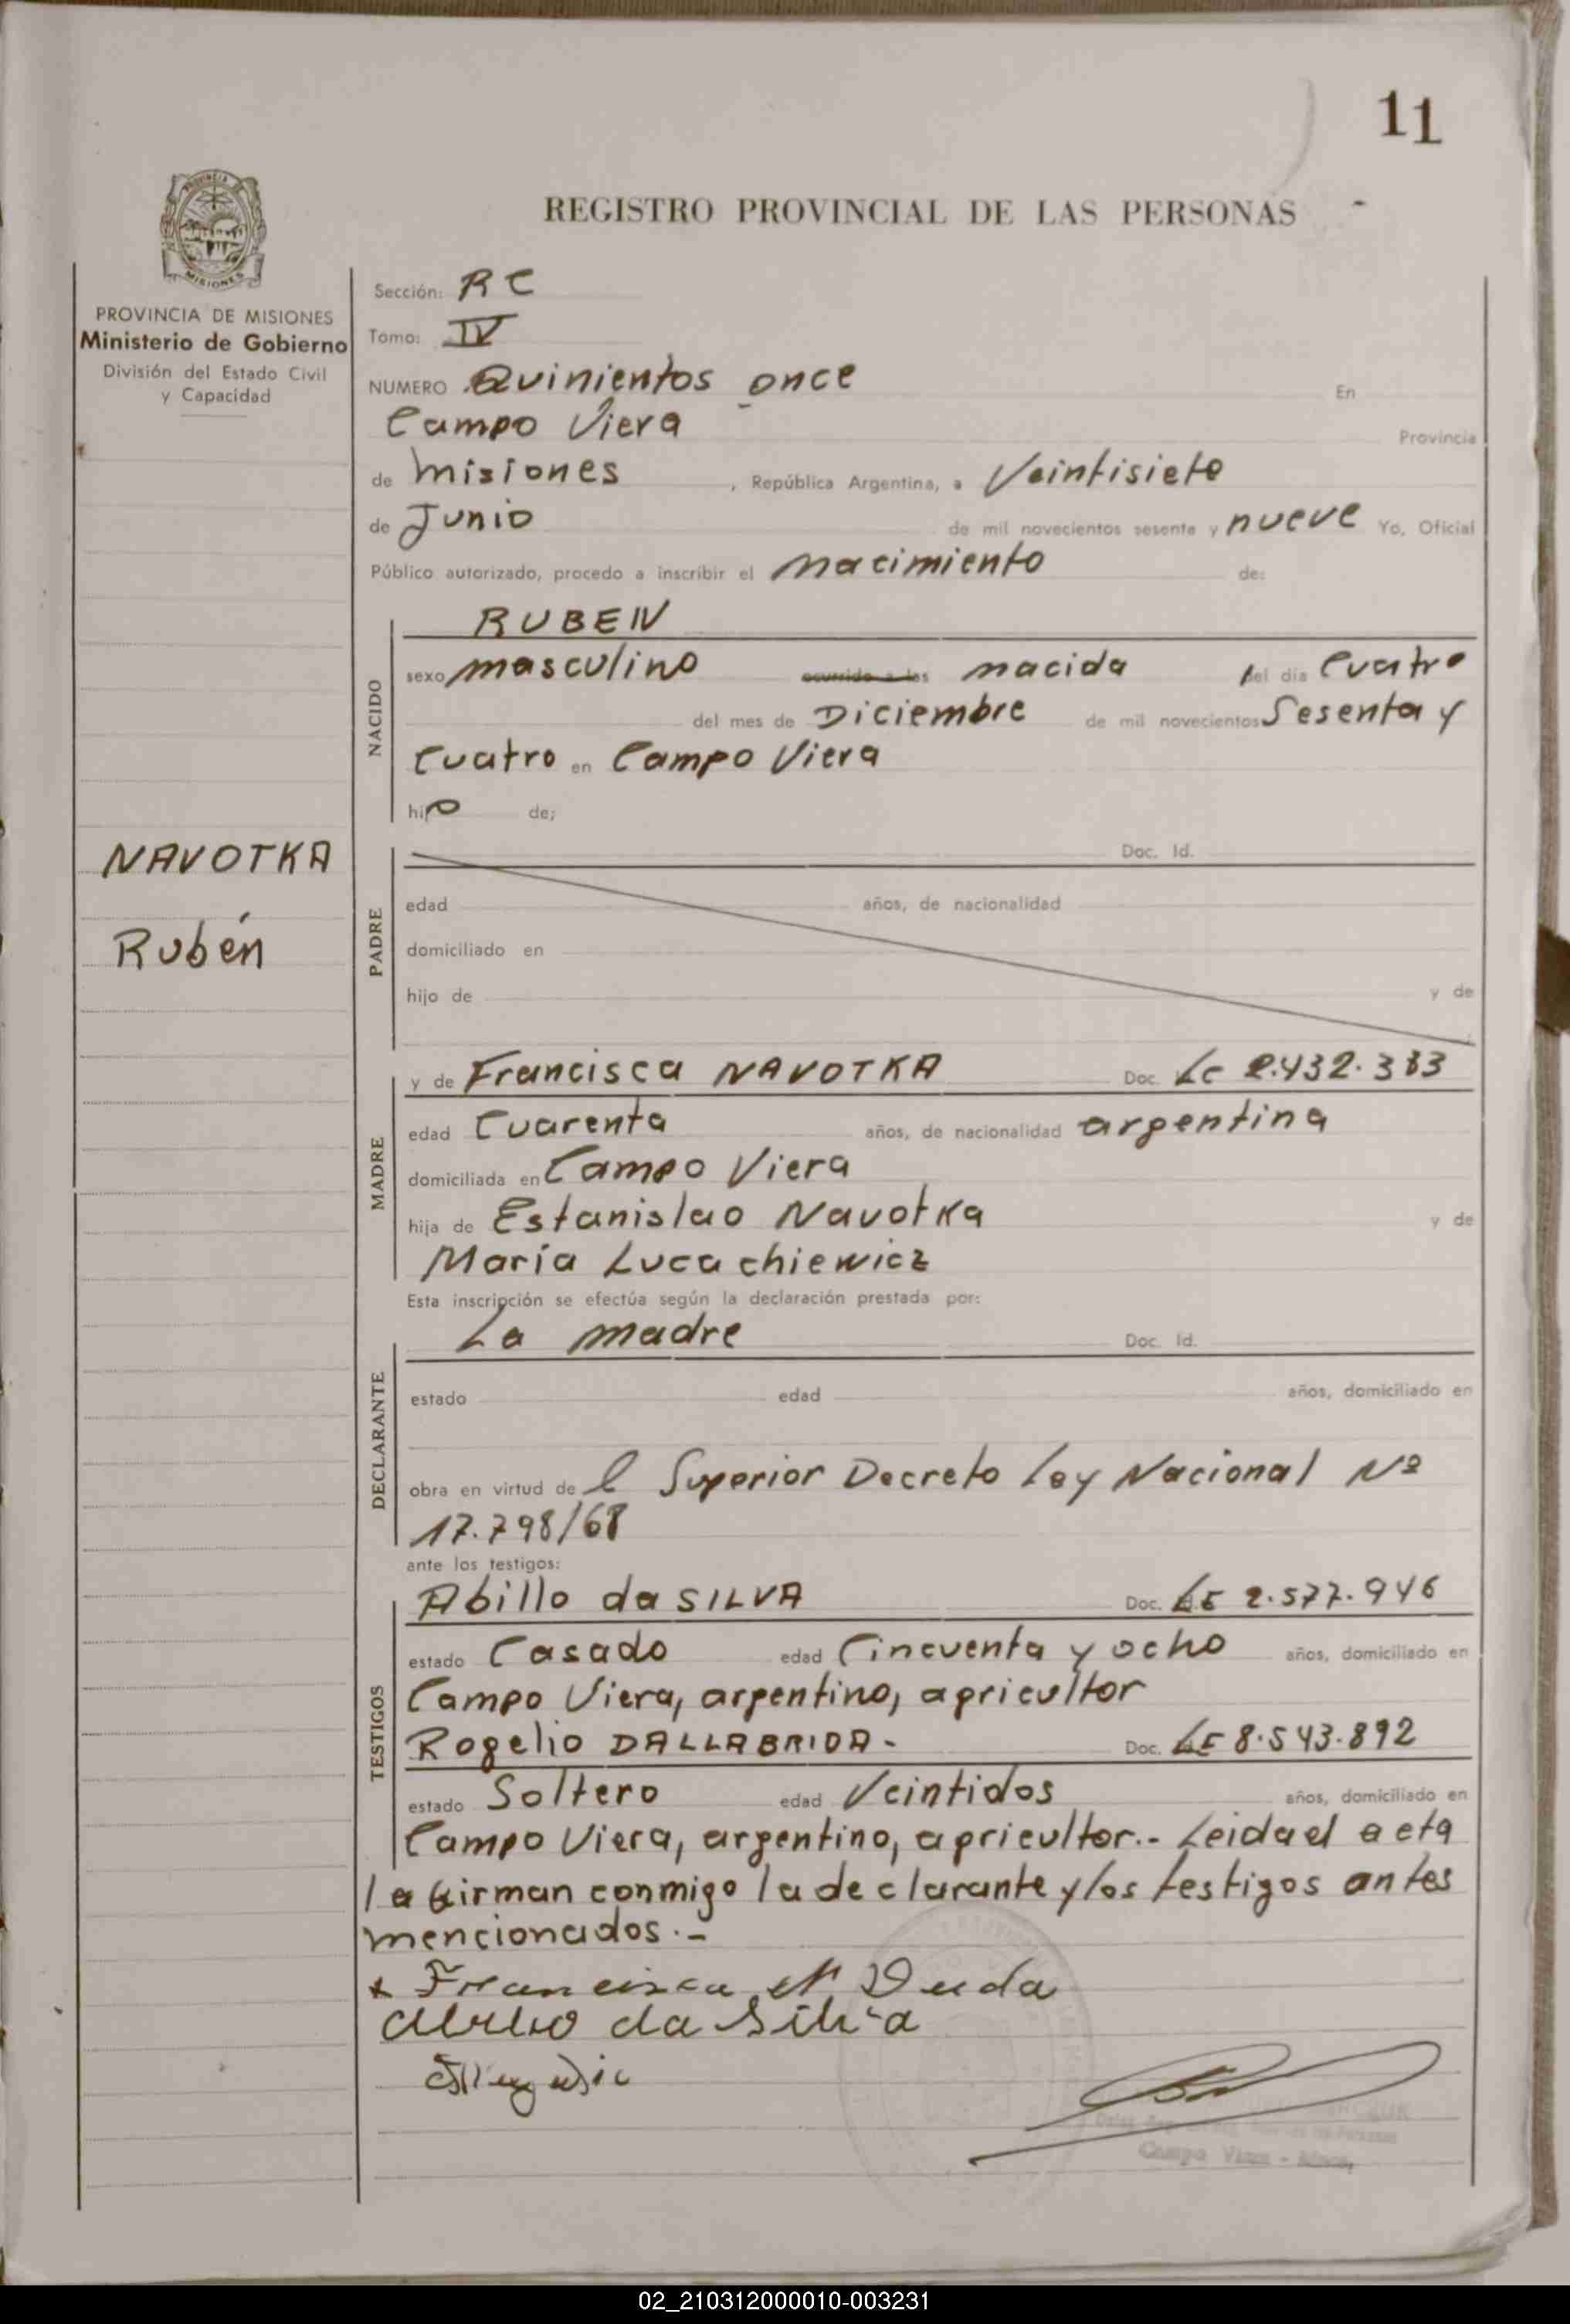 11
REGISTRO PROVINCIAL DE LAS PERSONAS
PROVINCIA DE MISIONES
Ministerio de Gobierno
División del Estado Civil
y Capacidad
Sección: RC
Tomo: IV
NUMERO Quinientos once En
Campo Viera Provincia
de Misiones, República Argentina, a Veintisiete
de Junio de mil novecientos sesenta y nueve Yo, Oficial
Público autorizado, procedo a inscribir el nacimiento de:
NACIDO
RUBEN
sexo masculino ocurrido a las nacida del día Cuatro
del mes de Diciembre de mil novecientos Sesenta y
Cuatro en Campo Viera
hijo de;
NAVOTKA
Rubén
PADRE
Doc. Id.
edad años, de nacionalidad
domiciliado en
hijo de y de
MADRE
y de Francisca NAVOTKA Doc. LC 2.432.383
edad Cuarenta años, de nacionalidad argentina
domiciliada en Campo Viera
hija de Estanislao Navotka y de
María Lucachiewicz
Esta inscripción se efectúa según la declaración prestada por:
DECLARANTE
La madre Doc. Id.
estado edad años, domiciliado en
obra en virtud de l Superior Decreto Ley Nacional Nº
17.798/68
ante los testigos:
TESTIGOS
Abillo da SILVA Doc. LE 2.577.946
estado Casado edad Cincuenta y ocho años, domiciliado en
Campo Viera, argentino, agricultor
Rogelio DALLABRIDA.- Doc. LE 8.543.892
estado Soltero edad Veintidos años, domiciliado en
Campo Viera, argentino, agricultor.- Leida el acta
la firman conmigo la declarante y los testigos antes
mencionados.-
x Francisca N Duda
da Silva
Campo Viera - Mnes.
02_210312000010-003231